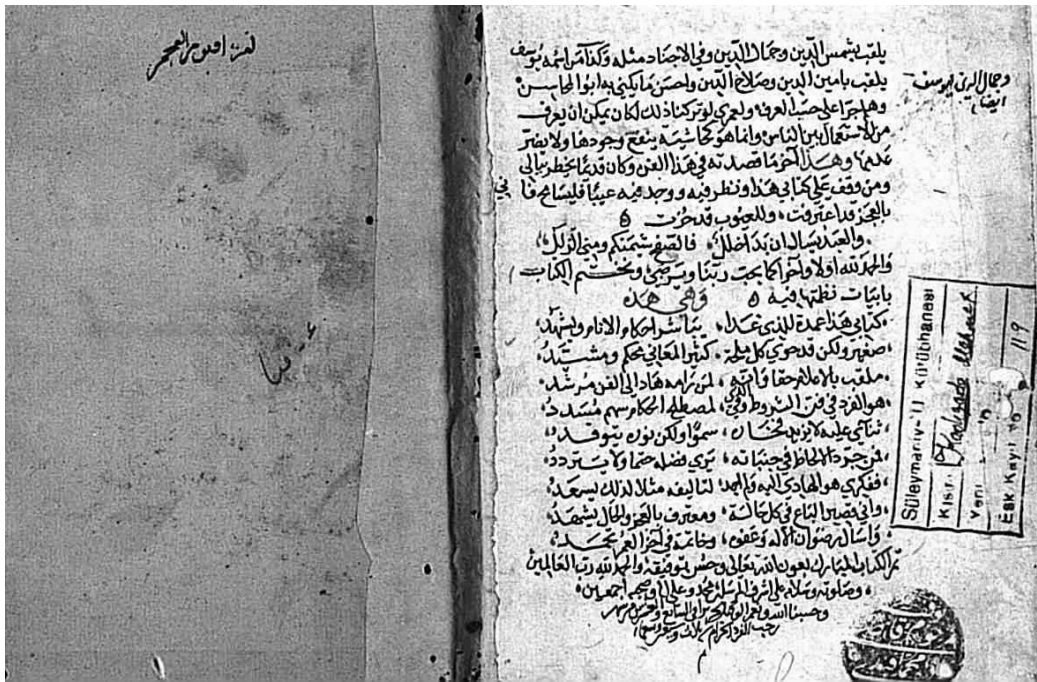 يلقب بشمس الدين وجمال الدين وفي الاجناد مثله وكذا من اسمه يوسف
يلقب بامين الدين وصلاح الدين واحسن ما يكنى به ابو المحاسن
وهلم جرا على حسب العرف ولعمري لو تركنا ذلك لكان يمكن ان يعرف
من الاستعمال بين الناس وانما هو كحاشية ينفع وجودها ولا يضر
عدمها وهذا آخر ما قصدته في هذا الفن وكان قديما يخطر ببالي
ومن وقف على كتابي هذا ونظر فيه ووجد فيه عيبا فليسامح فا في
بالعجز قد اعترفت وللعيوب قد حزت
والعبد يسال ان بدا خلل فالصفح شيمتكم ومني الزلل
والحمد لله اولا وآخرا كما يحب ربنا ويرضى ونختم الكتاب
بابيات نظمتها فيه وهي هذه
كتابي هذا عمدة للذي غدا يباشر احكام الانام ويشهد
صغير ولكن قد حوى كل ملحة كثير المعاني محكم ومشيد
ملقب بالاعلام حقا وانه لمن رامه هاد الى الفن مرشد
هو الفرد في فن الشروط وفي لمصطلح الحكام سهم مسدد
ثنائي عليه لا يزيد فخاره سموا ولكن نوره يتوقد
فمن جرد الالحاظ في جنباته يرى فضله حتما ولا يتردد
ففكري هو الهادي اليه والحمد لتاليفه مثلا لذلك يسعد
واني قصير الباع في كل حالة ومعترف بالعجز والحال يشهد
واسال رضوان الاله وعفوه وخاتمة في آخر العمر تحمد
تم الكتاب المبارك بعون الله تعالى وحسن توفيقه والحمد لله رب العالمين
وصلوته وسلامه على اشرف المرسلين محمد وعلى آله وصحبه اجمعين
وحسبنا الله ونعم الوكيل
رجب الفرد الحرام
وجمال الدين ليوسف
ايضا
Süleymaniye U Kütüphanesi
Kısmı Kadızade Mehmed
Yeni
Eski Kayıt No 119